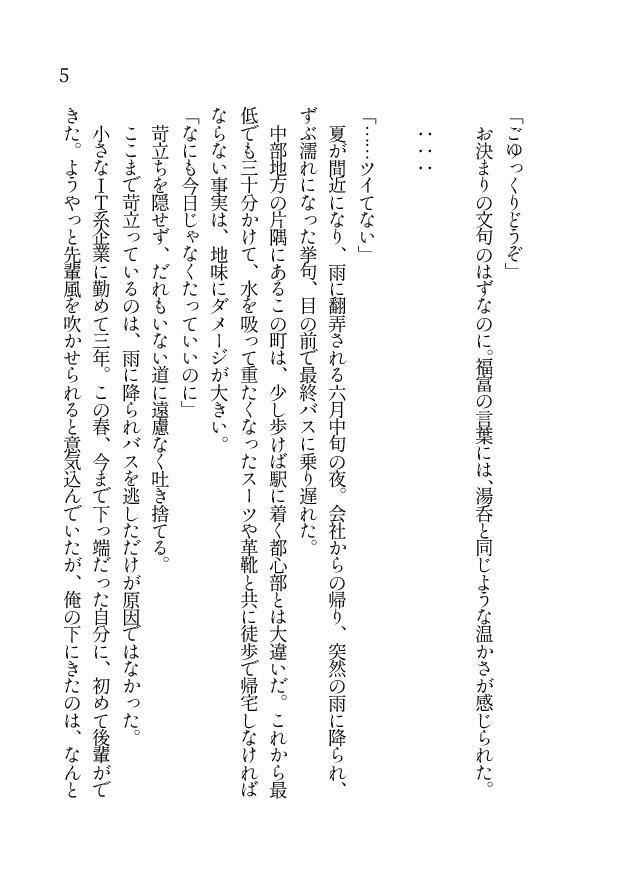 「ごゆっくりどうぞ」
お決まりの文句のはずなのに。福富の言葉には、湯呑と同じような温かさが感じられた。
・・・
「……ツイてない」
夏が間近になり、雨に翻弄される六月中旬の夜。会社からの帰り、突然の雨に降られ、
ずぶ濡れになった挙句、目の前で最終バスに乗り遅れた。
中部地方の片隅にあるこの町は、少し歩けば駅に着く都心部とは大違いだ。これから最
低でも三十分かけて、水を吸って重たくなったスーツや革靴と共に徒歩で帰宅しなければ
ならない事実は、地味にダメージが大きい。
「なにも今日じゃなくたっていいのに」
苛立ちを隠せず、だれもいない道に遠慮なく吐き捨てる。
ここまで苛立っているのは、雨に降られバスを逃しただけが原因ではなかった。
小さなIT系企業に勤めて三年。この春、今まで下っ端だった自分に、初めて後輩がで
きた。ようやっと先輩風を吹かせられると意気込んでいたが、俺の下にきたのは、なんと
5